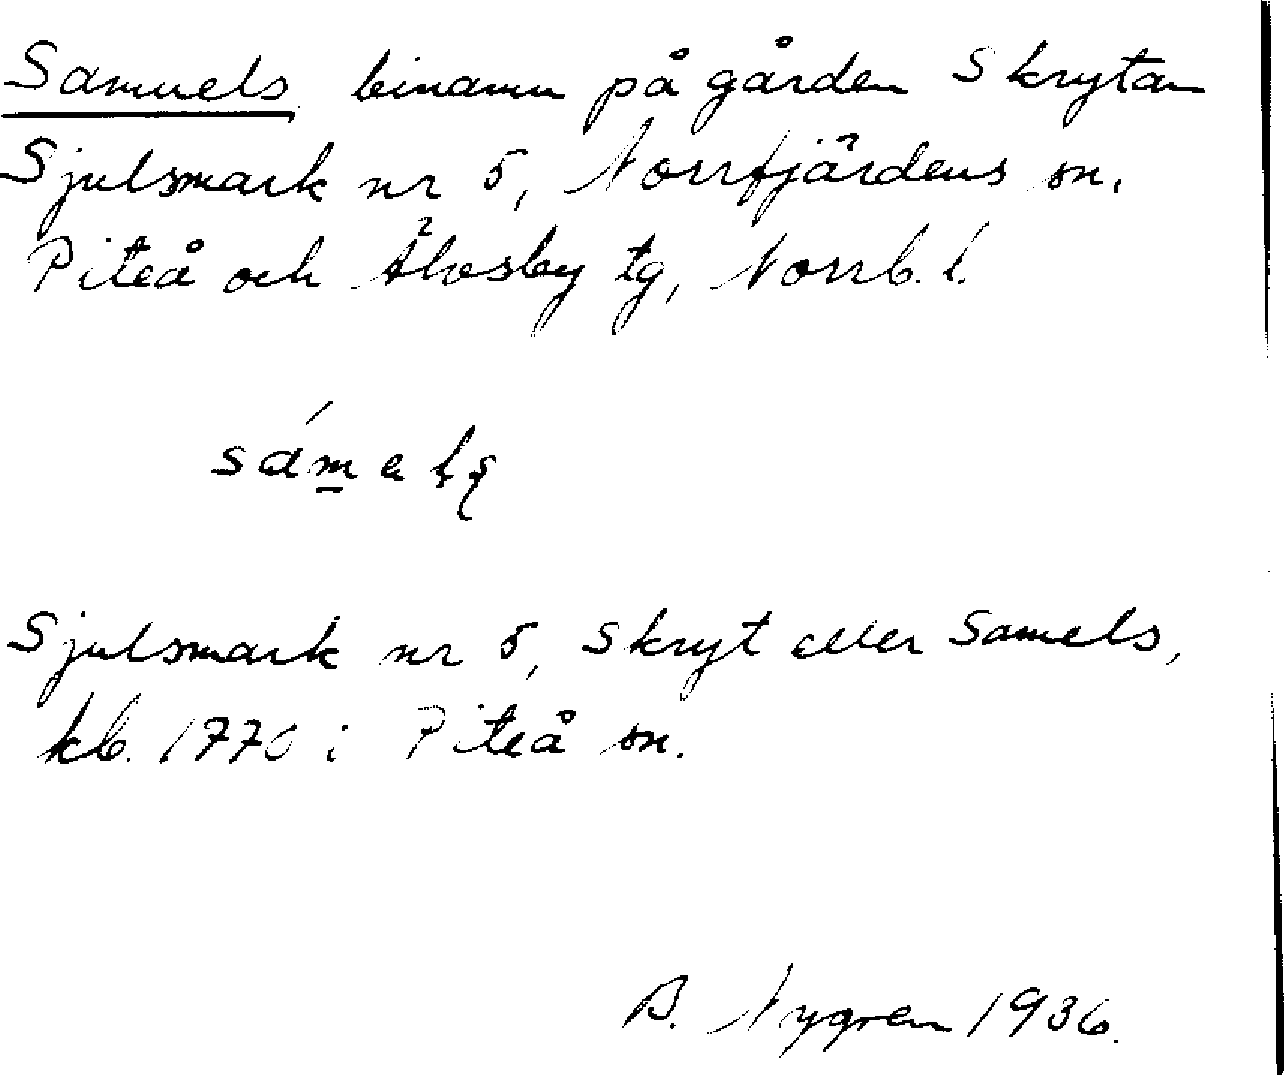 Samuels binamn på gården Skrytan
Sjulsmark nr 5, Norrfjärdens sn.
Piteå och Älvsby tg, Norrb. l.
Sjulsmark nr 5, Skryt eller Samels,
kb. 1770 i Piteå sn.
B. Nygren 1936.